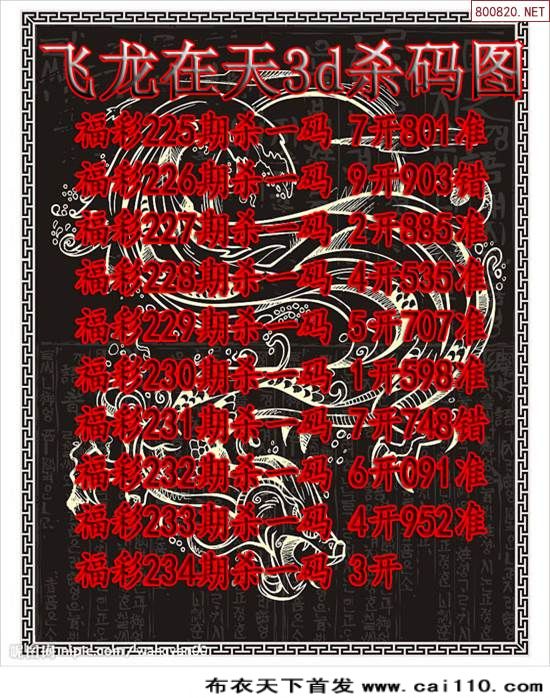 800820.NET
飞龙在天3d杀码图
福彩225期杀一码 7开801准
福彩226期杀一码 9开903错
福彩227期杀一码 2开885准
福彩228期杀一码 4开535准
福彩229期杀一码 5开707准
福彩230期杀一码 1开598准
福彩231期杀一码 7开748错
福彩232期杀一码 6开071准
福彩233期杀一码 4开952准
福彩234期杀一码 3开
布衣天下首发 www.cai110.com